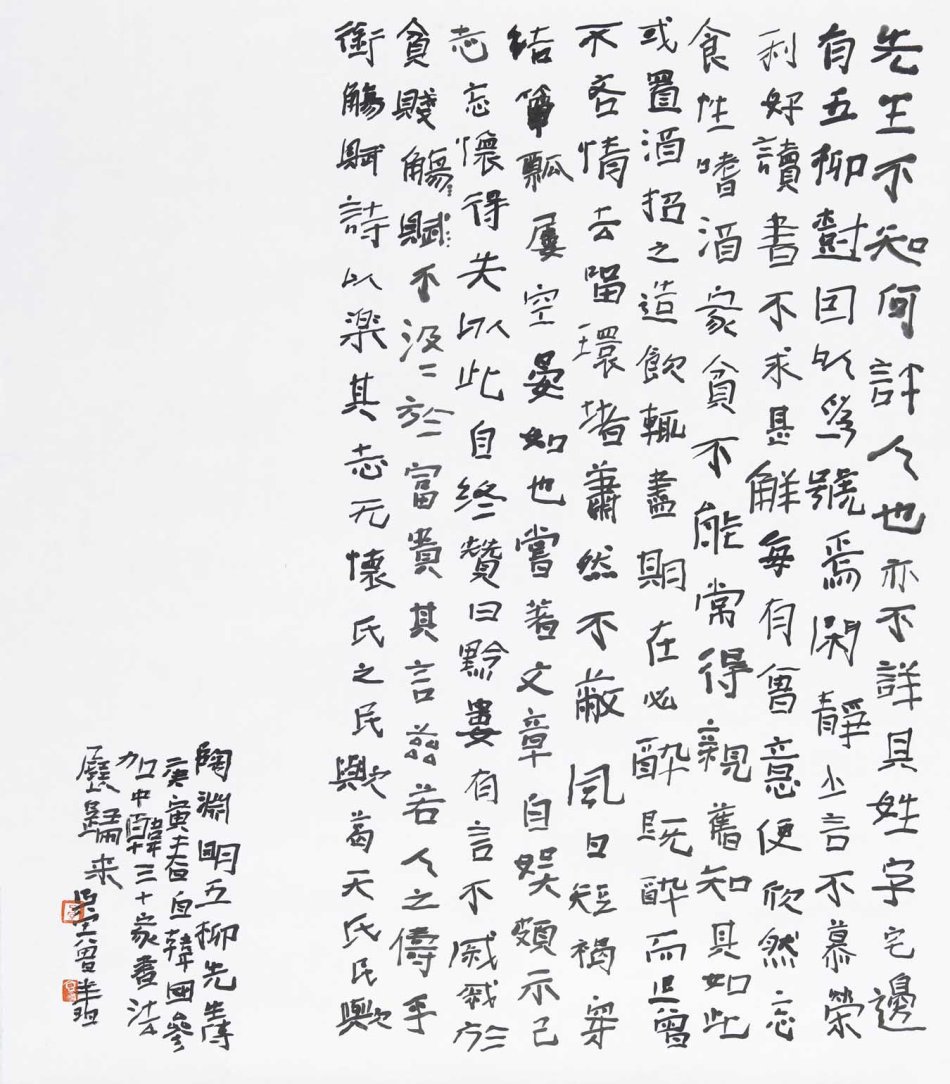 先生不知何許人也亦不詳其姓字宅邊
有五柳樹因以為號焉閑靜少言不慕榮
利好讀書不求甚解每有會意便欣然忘
食性嗜酒家貧不能常得親舊知其如此
或置酒招之造飲輒盡期在必醉既醉而退曾
不吝情去留環堵蕭然不蔽風日短褐穿
結簞瓢屢空晏如也嘗著文章自娛頗示己
志忘懷得失以此自終贊曰黔婁有言不戚戚於
貧賤觴賦不汲汲於富貴其言茲若人之儔乎
銜觴賦詩以樂其志无懷氏之民歟葛天氏民歟
陶淵明五柳先生傳
庚寅春自韓國參
加中韓三十家書法
展歸來